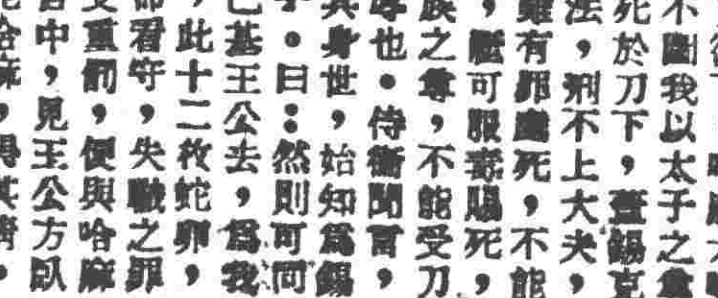 不斷我以太子之尊
死於刀下，蓋錫克
法，刑不上大夫，
雖有罪應死，不能
，可服毒賜死，
族之尊，不能受刀
辱也．侍衛聞言，
其身世，始知爲錫
．曰：然則可同
基王公去，爲我
，此十二枚蛇卵，
看守，失職之罪
重罰，便與哈麻
中，見王公方臥
哈麻，